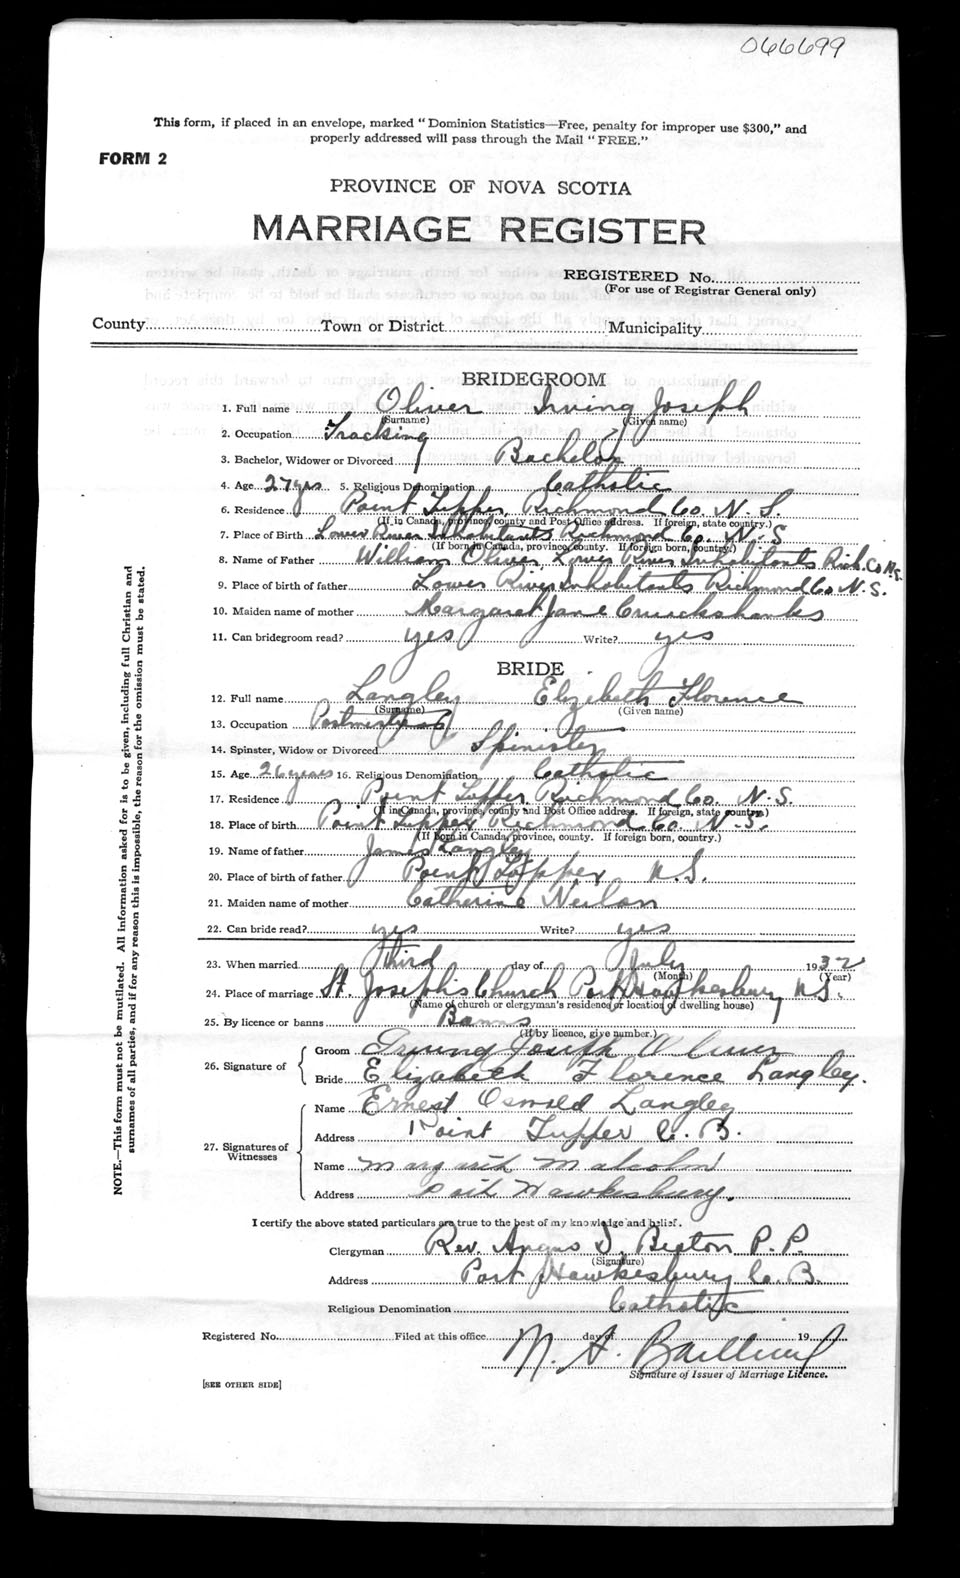 066699
This form, if placed in an envelope, marked "Dominion Statistics—Free, penalty for improper use $300," and
properly addressed will pass through the Mail "FREE."
FORM 2
PROVINCE OF NOVA SCOTIA
MARRIAGE REGISTER
REGISTERED No.
(For use of Registrar General only)
County Town or District Municipality
BRIDEGROOM
1. Full name Oliver Irving Joseph
(Surname) (Given name)
2. Occupation Trucking
3. Bachelor, Widower or Divorced Bachelor
4. Age 27 yrs 5. Religious Denomination Catholic
6. Residence Point Tupper, Richmond Co. N. S.
(If in Canada, province, county and Post Office address. If foreign, state country.)
7. Place of Birth Lower River Inhabitants Richmond Co. N. S
(If born in Canada, province, county. If foreign born, country.)
8. Name of Father William Oliver, Lower River Inhabitants Rich. Co N.S.
9. Place of birth of father Lower River Inhabitants Richmond Co N. S.
10. Maiden name of mother Margaret Jane Cruickshanks
11. Can bridegroom read? yes Write? yes
BRIDE
12. Full name Langley Elizabeth Florence
(Surname) (Given name)
13. Occupation
14. Spinster, Widow or Divorced Spinster
15. Age 26 years 16. Religious Denomination Catholic
17. Residence Point Tupper, Richmond Co. N. S.
(If in Canada, province, county and Post Office address. If foreign, state country.)
18. Place of birth Point Tupper Richmond Co. N. S.
(If born in Canada, province, county. If foreign born, country.)
19. Name of father James Langley
20. Place of birth of father Point Tupper N. S.
21. Maiden name of mother Catherine Neilan
22. Can bride read? yes Write? yes
23. When married third day of July 1932
(Month) (Year)
24. Place of marriage St. Joseph's Church Port Hawkesbury N S.
(Name of church or clergyman's residence or location of dwelling house)
25. By licence or banns Banns
(If by licence, give number.)
26. Signature of
Groom Irving Joseph Oliver
Bride Elizabeth Florence Langley.
27. Signatures of Witnesses
Name Ernest Oswald Langley
Address Point Tupper C. B.
Name Margaret Malcolm
Address Port Hawkesbury.
I certify the above stated particulars are true to the best of my knowledge and belief.
Clergyman Rev. Angus D. Beaton P. P.
(Signature)
Address Port Hawkesbury C. B.
Religious Denomination Catholic
Registered No. Filed at this office day of 19
M. A.
Signature of Issuer of Marriage Licence.
[SEE OTHER SIDE]
NOTE.—This form must not be mutilated. All information asked for is to be given, including full Christian and
surnames of all parties, and if for any reason this is impossible, the reason for the omission must be stated.